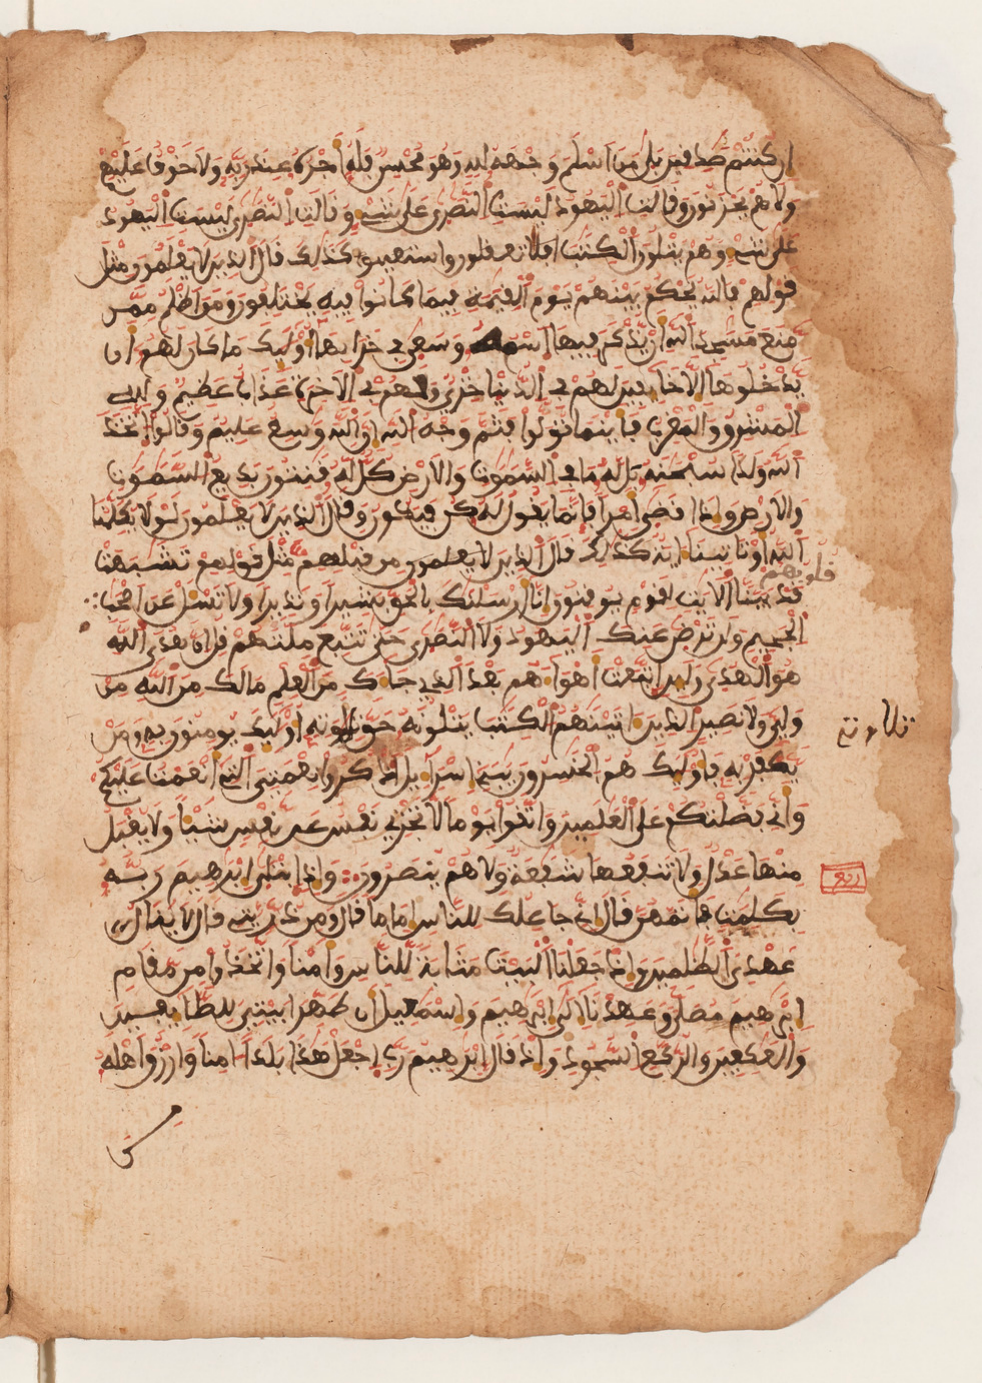 ان كنتم صدقين بلى من اسلم وجهه لله وهو محسن فله اجره عند ربه ولا خوف عليهم
ولا هم يحزنون وقالت اليهود ليست النصرى على شىء وقالت النصرى ليست اليهود
على شىء وهم يتلون الكتب كذلك قال الذين لا يعلمون مثل
قولهم فالله يحكم بينهم يوم القيمة فيما كانوا فيه يختلفون ومن اظلم ممن
منع مسجد الله ان يذكر فيها اسمه وسعى في خرابها اوليك ما كان لهم ان
يدخلوها الا خايفين لهم في الدنيا خزي ولهم في الاخرة عذاب عظيم ولله
المشرق والمغرب فاينما تولوا فثم وجه الله ان الله وسع عليم وقالوا اتخذ
الله ولدا سبحنه بل له ما في السموت والارض كل له قنتون بديع السموت
والارض واذا قضى امرا فانما يقول له كن فيكون وقال الذين لا يعلمون لولا يكلمنا
الله او تاتينا اية كذلك قال الذين لا يعلمون من قبلهم مثل قولهم تشبهت
قلوبهم
قد بينا الايت لقوم يوقنون انا ارسلنك بالحق بشيرا ونذيرا ولا تسل عن اصحب
الجحيم ولن ترضى عنك اليهود ولا النصرى حتى تتبع ملتهم قل ان هدى الله
هو الهدى ولين اتبعت اهواهم بعد الذي جاك من العلم مالك من الله من
ولي ولا نصير الذين اتينهم الكتب يتلونه حق تلاوته اوليك يومنون به ومن
تلاوته
يكفر به فاوليك هم الخسرون يبني اسرايل اذكروا نعمتي التي انعمت عليكم
واني فضلتكم على العلمين واتقوا يوما لا تجزي نفس عن نفس شيا ولا يقبل
منها عدل ولا تنفعها شفعة ولا هم ينصرون واذ ابتلى ابرهيم ربه
ربع
بكلمت فاتمهن قال اني جاعلك للناس اماما قال ومن ذريتي قال لا ينال
عهدي الظلمين واذ جعلنا البيت مثابة للناس وامنا واتخذوا من مقام
ابرهيم مصلى وعهدنا الى ابرهيم واسمعيل ان طهرا بيتي للطايفين
والعكفين والركع السجود واذ قال ابرهيم رب اجعل هذا بلدا امنا وارزق اهله